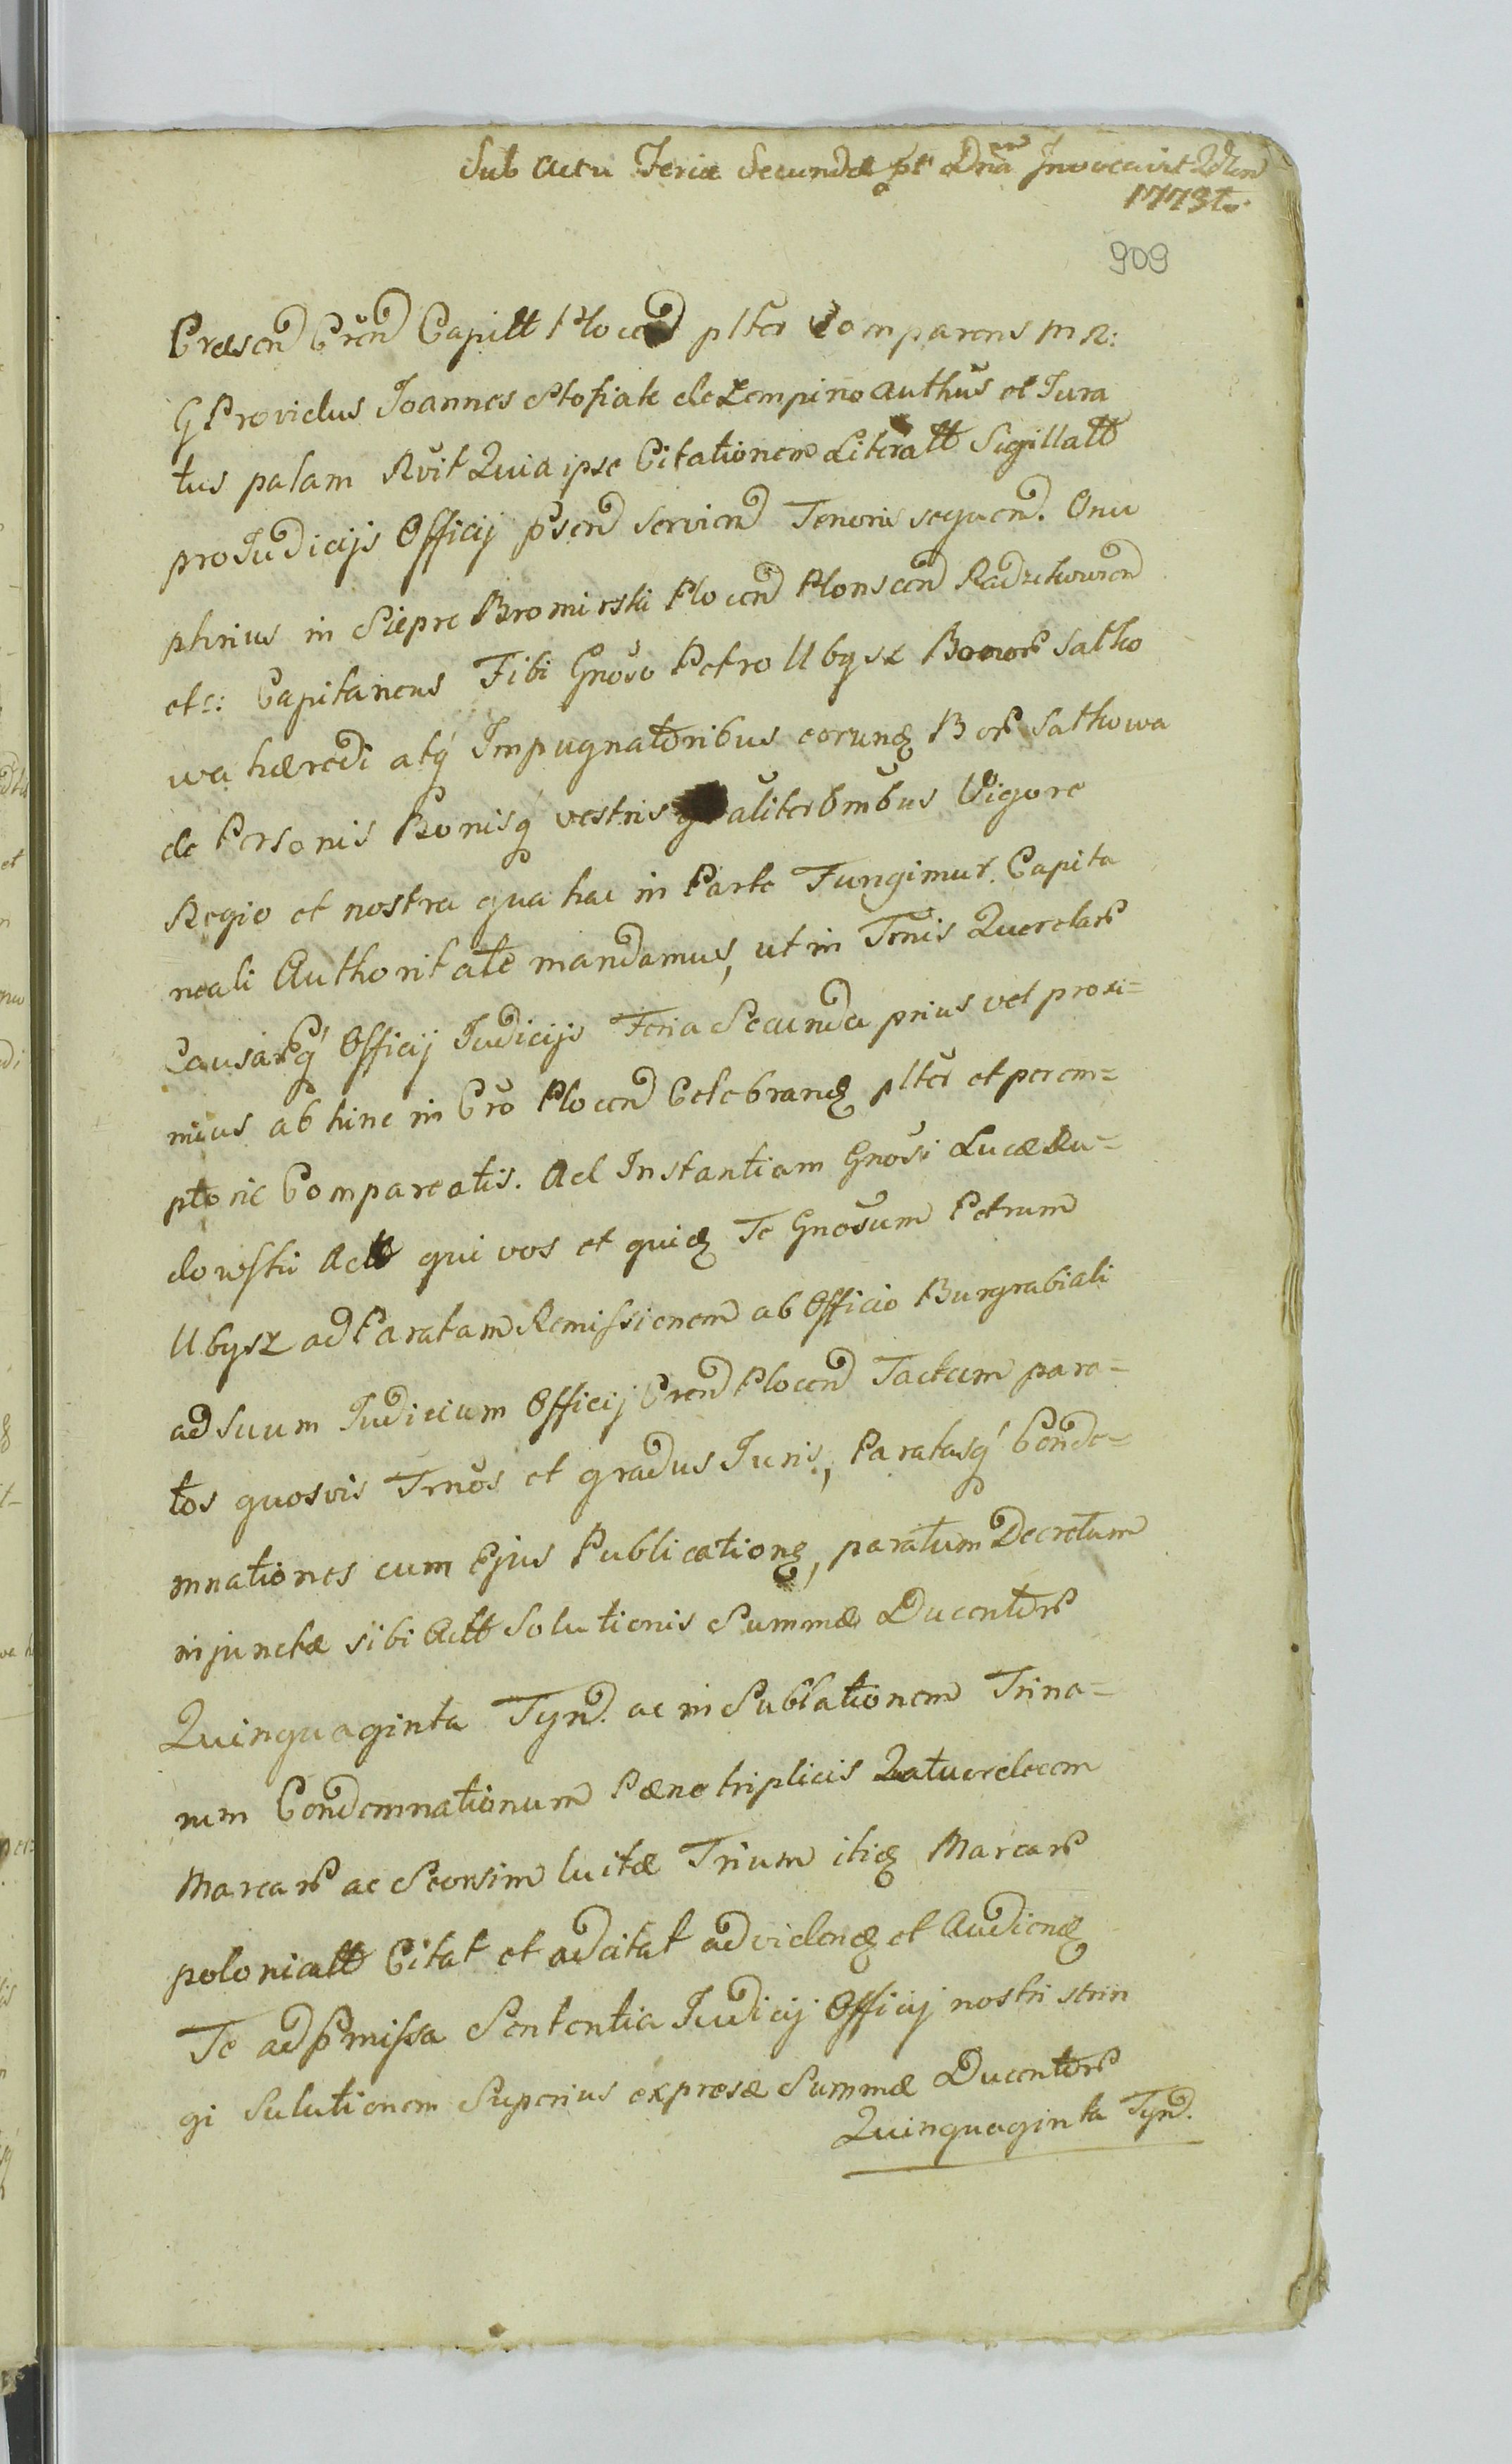 Sub Actu Feria Secunda pt Dnām Invocavit Qdrm
1773to.
909
Præsen Cren Capitt Plocen plter Comparens MR:
G Providus Joannes Stofiak de Lempino authus et Jura
tus palam Rvit Quia ipse Citationem Literatt Sigillatt
pro Judicijs Officij psen servien Tenoris sequen. Onu
phrius in Siepre Bromirski Plocen Plonscen Radzikowien
etc: Capitaneus Tibi Gnoso Petro Ubysz Bonor Satko
wa hæredi atq Impugnatoribus eorund Bor Satkowa
de Personis Bonisq vestris gnaliter Omibus Vigore
Regio et nostra qua hac in Parte Fungimur Capita
neali Authoritate mandamus, ut in Trnis Querelar
Causarq Officij Judicijs Feria Secunda prius vel proxi=
mius ab hinc in Cro Plocen Celebrand plter et perem=
ptorie Compareatis. Ad Instantiam Gnosi Lucæ Ru=
dowski Actt qui vos et quid Te Gnosum Petrum
Ubysz ad Paratam Remissionem ab Officio Burgrabiali
ad suum Judicium Officij Cren Plocen Factam para=
tos quosvis Trnos et gradus Juris, Paratasq Conde=
mnationes cum Ejus Publicatione, paratum Decretum
injunctæ sibi Actt Solutionis Summæ Ducentor
Quinquaginta Tyn. ac in Sublationem Trina=
rum Condemnationum Pæne triplicis Quatuordecem
Marcar ac Seorsim luitæ Trium itid Marcar
polonicatt Citat et adcitat ad vidend et Audiend
Te ad pmissa Sententia Judicij Officij nostri strin
gi Sulutionem Superius expresæ Summæ Ducentor
Quinquaginta Tyn.